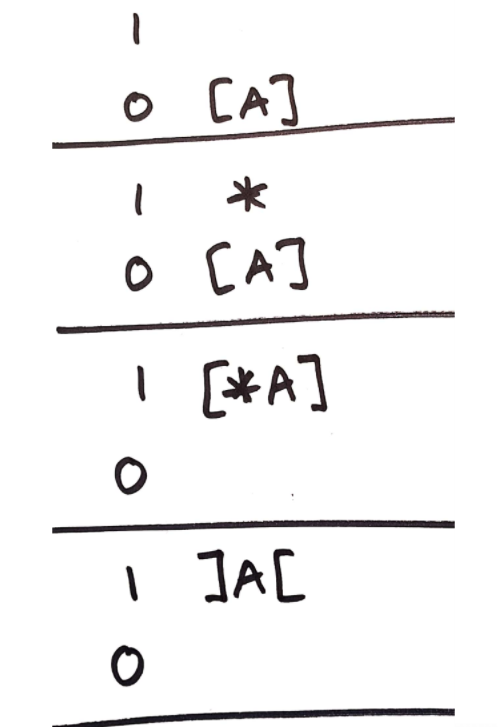 1
0 [A]
1 *
0 [A]
1 [*A]
0
1 ]A[
0